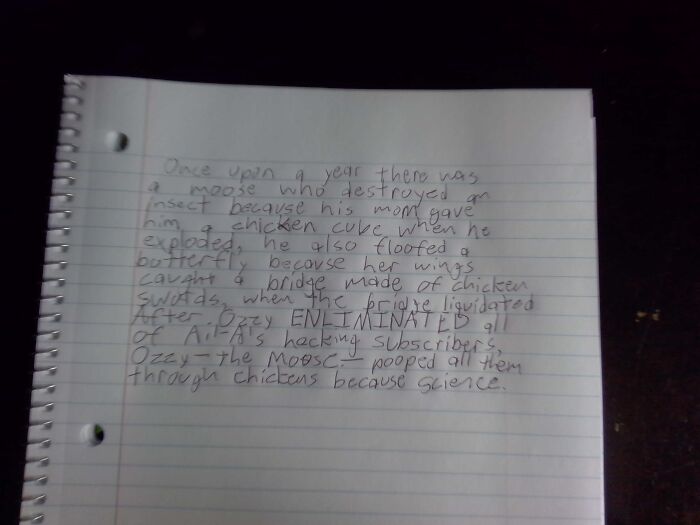 Once upon a year there was
a moose who destroyed an
insect because his mom gave
him a chicken cube when he
exploded, he also floofed a
butterfly because her wings
caught a bridge made of chicken
swords, when the bridge liquidated
After Ozzy ENLIMINATED all
of hacking subscribers,
Ozzy—the Moose— pooped all them
through chickens because science.